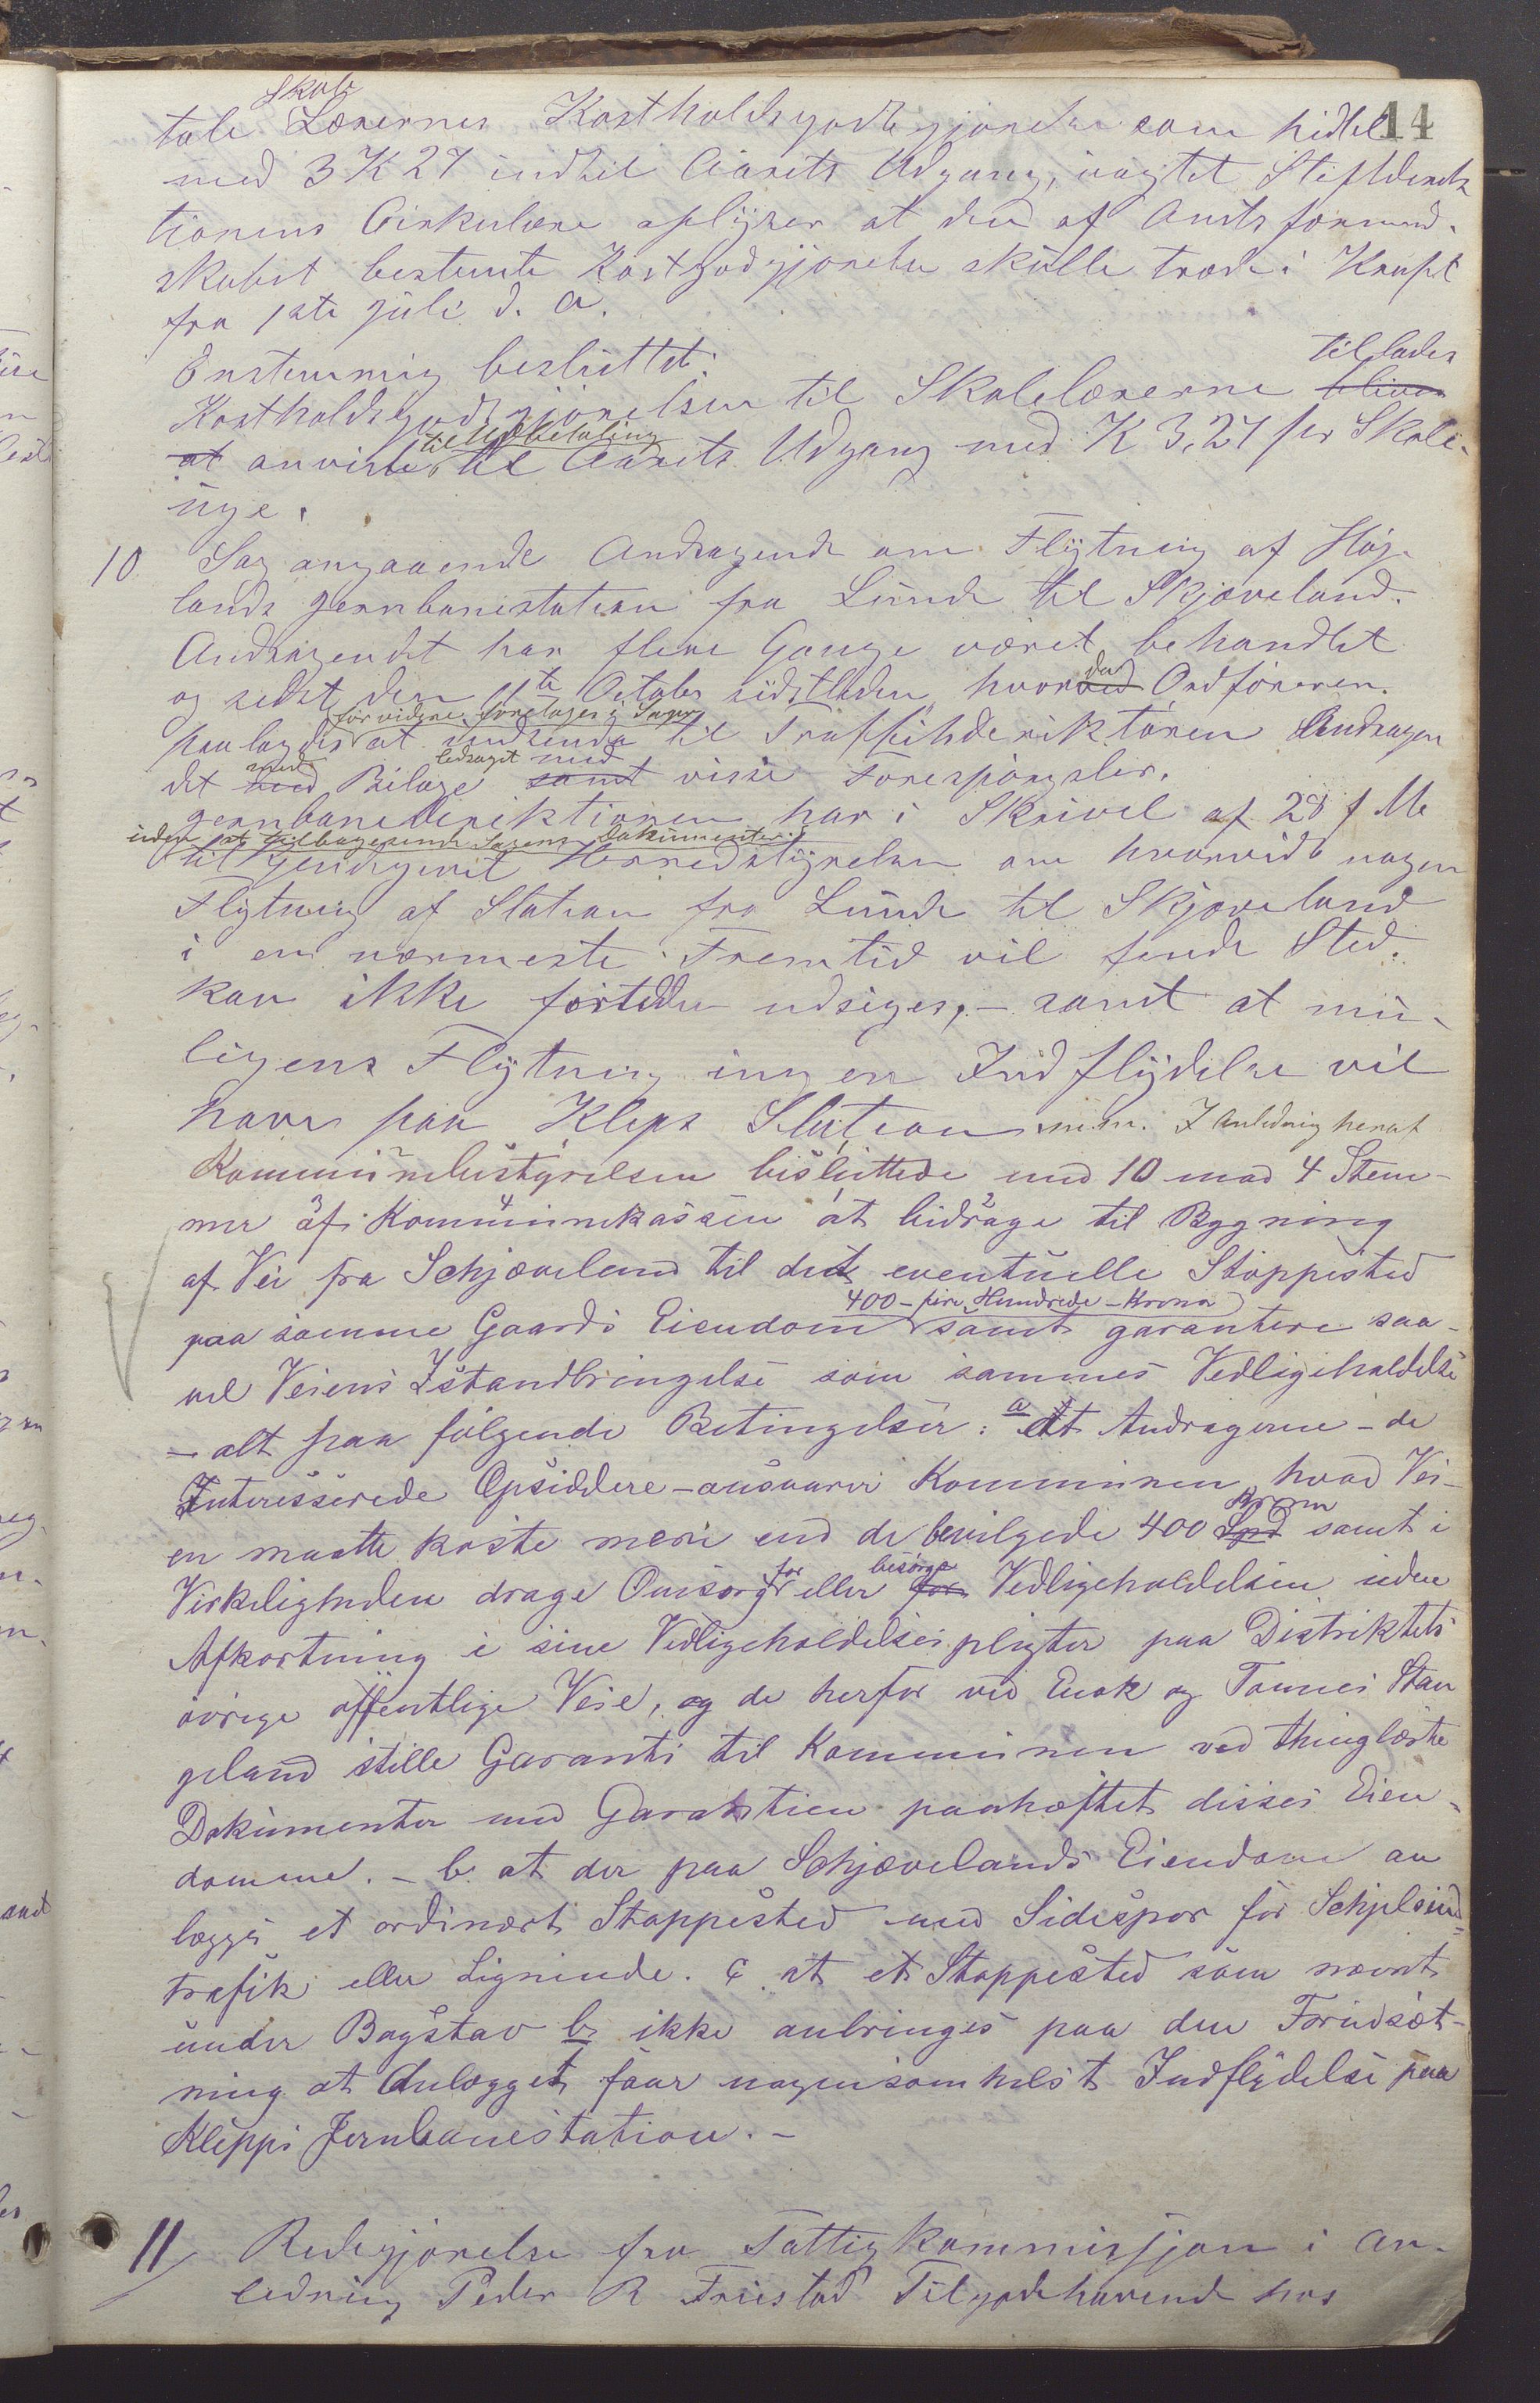 14
tale Skole Lærernes Kostholdsgodtgjørelse som hidtil
med 3 K 27 indtil Aarets Udgang, uagtet Stiftsdirek
tionens Cirkulære oplyser at den af Amtsformand-
skabet bestemte Kostgodgjørelse skulle træde i Kraft
fra 1ste Juli d. A.
Enstemmig besluttet:
Kostholdsgodtgjørelsen til Skolelærerne bliver tillades
at anvist til Udbetaling til Aarets Udgang med K 3,27 per Skole-
uge.
10 Sag angaaende Andragende om Flytning af Høg-
lands Jernbanestation fra Lunde til Skjæveland.
Andragendet har flere Gange været behandlet
og sidst den 11te October sidstleden, hvorved da Ordføreren
paalagdes før videre foretages i Sagen at indsende til Traffikdirektøren Andragen
det med med Bilage ledsaget med samt visse Forespørgsler.
Jernbanedirektionen har i Skrivel af 28 f Me
uden at tilbagesende Sagens Dokumenter
tilkjendegivet Herredstyrelsen om hvorvidt nogen
Flytning af Station fra Lunde til Skjæveland
i en nærmeste Fremtid vil finde Sted.
kan ikke fortiden udsiges, - samt at mu-
ligens Flytning ingen Indflydelse vil
have paa Kleps Station m.m. I Anledning herat
Kommunebestyrelsen besluttede med 10 mod 4 Stem-
mer af Kommunekassen at bidrage til Bygning
af Vei fra Schjæveland til det eventuelle Stoppested
paa samme Gaards Eiendom 400 - fire Hundrede - Kroner samt garantere saa-
vel Veiens Istandbringelse som sammes Vedligeholdelse
- alt paa følgende Betingelser: a at Andragerne - de
Interesserede Opsiddere - ansvarer Kommunen, hvad Vei-
en maatte koste mere end de bevilgede 400 Spd Kroner samt i
Virkeligheden drage Omsorg for eller for besørge Vedligeholdelsen uden
Afkortning i sine Vedligeholdelsespligter paa Distriktets
øvrige offentlige Veie, og de herfor ved Enok og Tønnes Stan
geland stille Garanti til Kommunen ved thinglæste
Dokumenter med Garantien paahæftet disses Eien-
domme. - b. at der paa Schjævelands Eiendom an
lægges et ordinært Stoppested med Sidespor for Schjelsand-
trafik eller Lignende. c at et Stoppested som nævnt
under Bogstav b. ikke anbringes paa den Forudsæt-
ning at Anlægget faar nogensomhelst Indflydelse paa
Klepps Jernbanestation. -
11 Redegjørelse fra Fattigkommissjon i An-
ledning Peder R Friestad Tilgodehavende hos